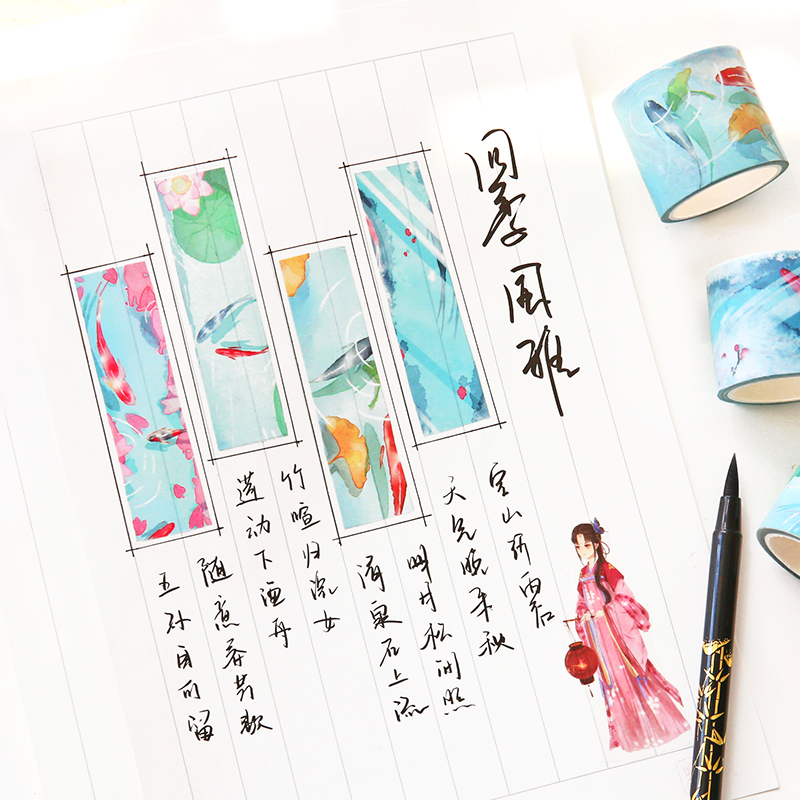 四季风雅
空山新雨后
天气晚来秋
明月松间照
清泉石上流
竹喧归浣女
莲动下渔舟
随意春芳歇
王孙自可留